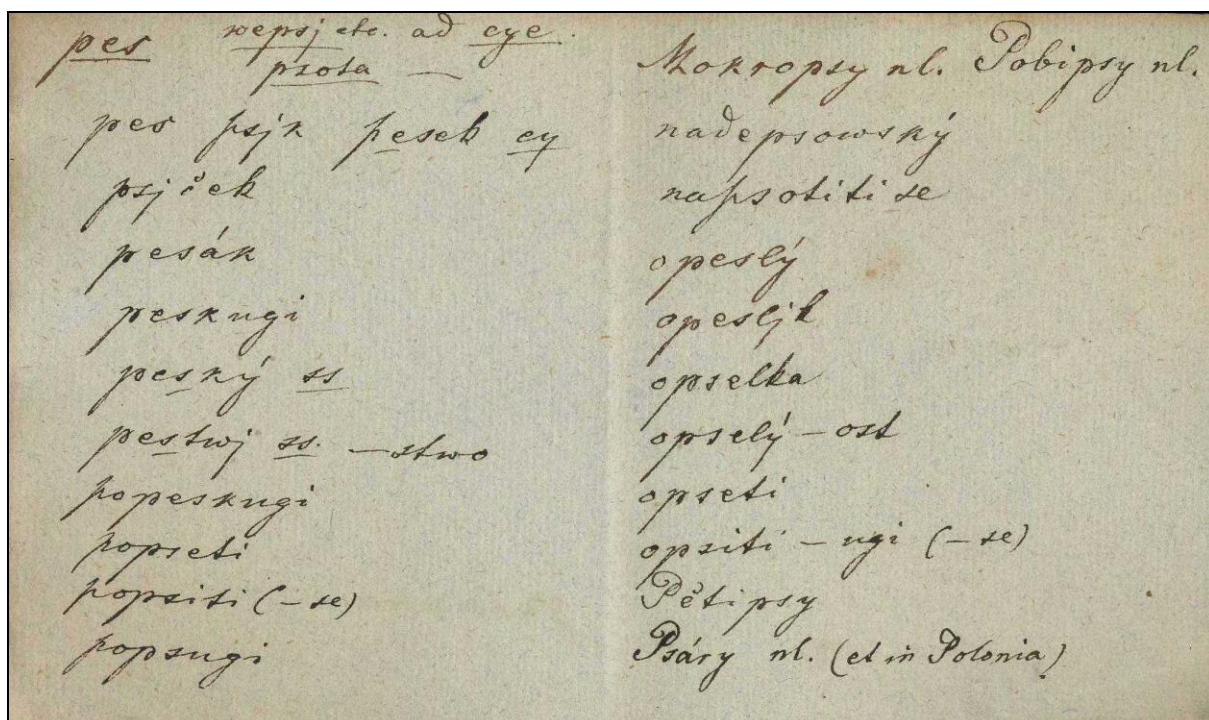 pes wepsj etc. ad cye.
psota —
pes psjk pesek cy
psjček
pesák
peskugi
peský ss
pestwj ss. —stwo
popeskugi
popseti
popsiti (—se)
popsugi
Mokropsy nl. Pobipsy nl.
nadepsowský
napsotiti se
opeslý
opesljk
opselka
opselý — ost
opseti
opsiti — ugi (— se)
Pětipsy
Psáry nl. (et in Polonia)